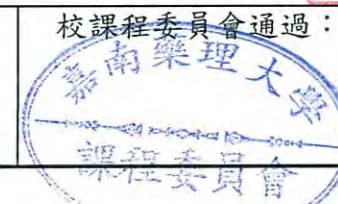 校課程委員會通過：
嘉南樂理大學
課程委員會